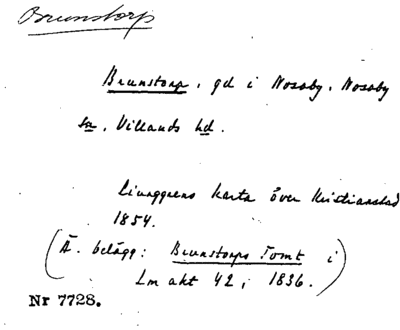 Brunstorp
Brunstorp, gd i Nosaby, Nosaby
sn, Villands hd.
Ljunggrens karta över Kristianstad
1854.
(Ä. belägg: Brunstorps Tomt i
Lm akt 42, 1836.)
Nr 7728.